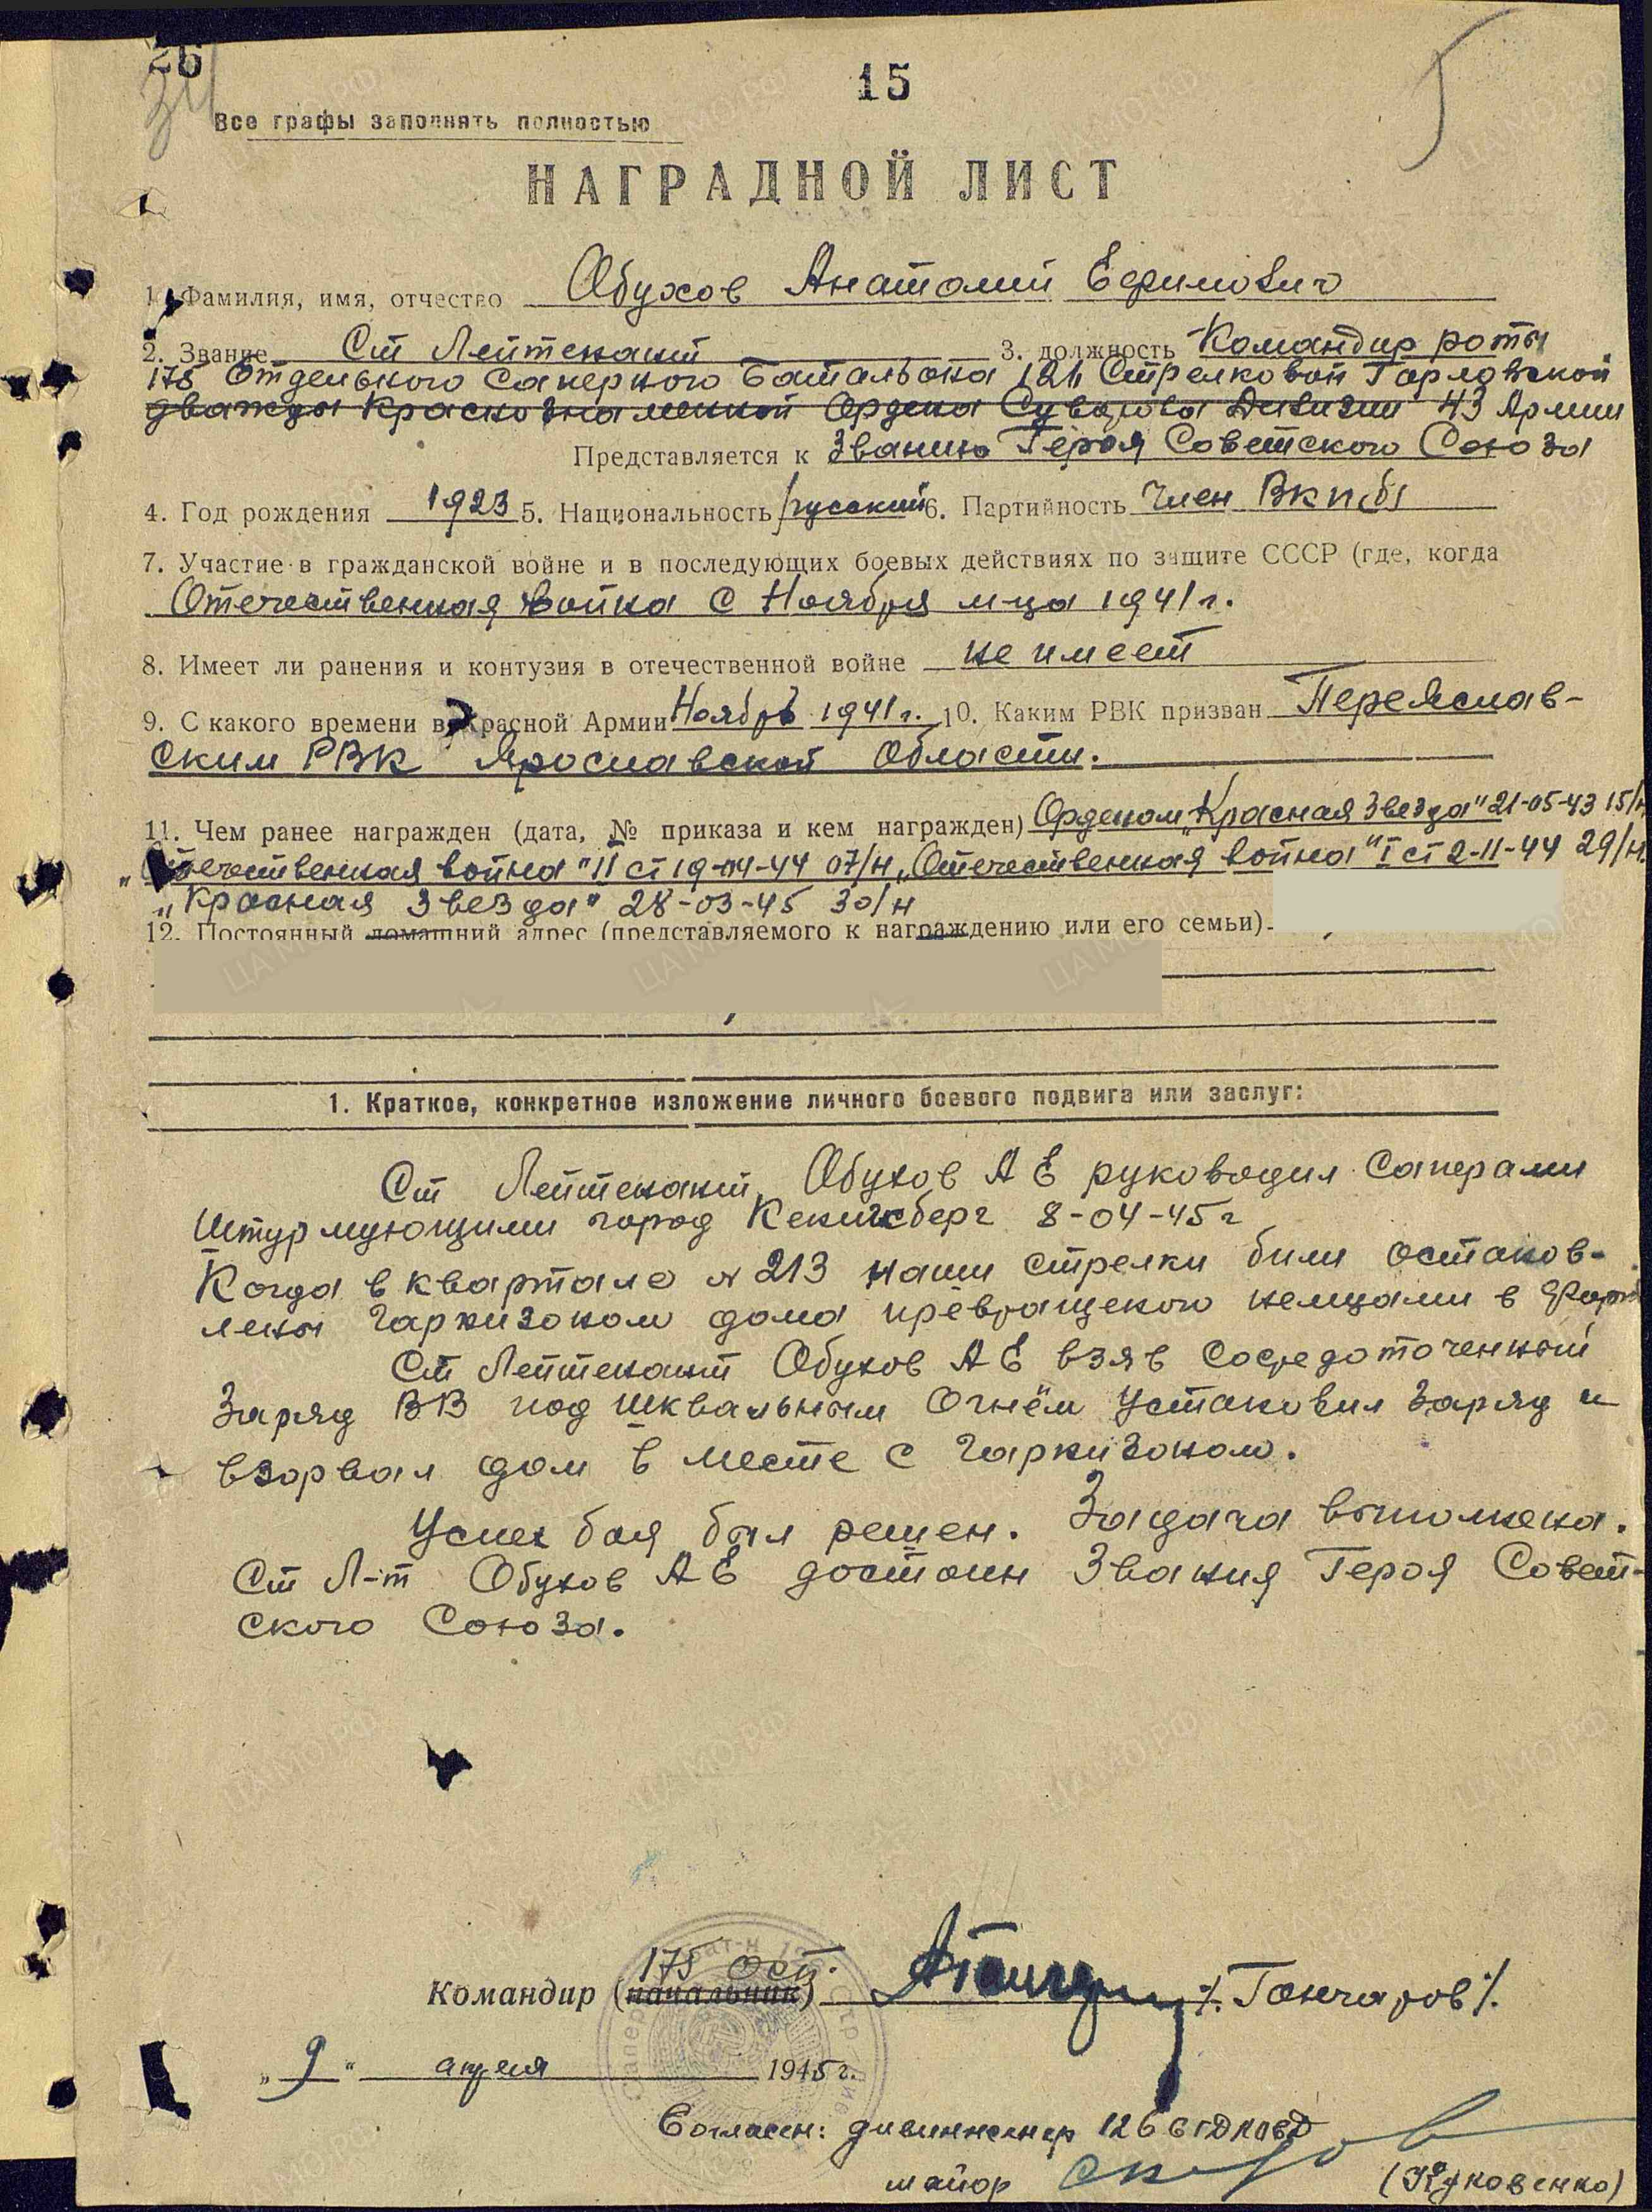 26
34
15
5
Все графы заполнять полностью
НАГРАДНОЙ ЛИСТ
1. Фамилия, имя, отчество Обухов Анатолий Ефимович
2. Звание Ст Лейтенант 3. должность Командир роты
175 Отдельного Саперного Батальона 126 Стрелковой Горловской
дважды Краснознаменной Ордена Суворова Дивизии 43 Армии
Представляется к Званию Героя Советского Союза
4. Год рождения 1923 5. Национальность русский 6. Партийность Член ВКП(б)
7. Участие в гражданской войне и в последующих боевых действиях по защите СССР (где, когда
Отечественная война с Ноября м-ца 1941 г.
8. Имеет ли ранения и контузия в отечественной войне не имеет
9. С какого времени в Красной Армии Ноябрь 1941 г. 10. Каким РВК призван Переяслав-
ским РВК Ярославской Области.
11. Чем ранее награжден (дата, № приказа и кем награжден) Орденом „Красная Звезда" 21-05-43 15/н
„Отечественная война" II ст 19-04-44 07/н „Отечественная война" I ст 2-11-44 29/н
„Красная Звезда" 28-03-45 30/н
12. Постоянный домашний адрес (представляемого к награждению или его семьи)
1. Краткое, конкретное изложение личного боевого подвига или заслуг:
Ст Лейтенант Обухов А Е руководил Саперами
Штурмующими город Кенигсберг 8-04-45 г
Когда в квартале № 213 наши стрелки были останов-
лены гарнизоном дома превращеного немцами в Форт
Ст Лейтенант Обухов А Е взяв Сосредоточенный
Заряд ВВ под шквальным Огнём Установил Заряд и
взорвал дом в месте с гарнизоном.
Успех боя был решен. Задача выполнена.
Ст Л-т Обухов А Е достоин Звания Героя Совет-
ского Союза.
175 осп.
Командир (начальник) /. Гончаров /.
„9" апреля 1945 г.
Согласен: дивинженер 126
майор (Куковенко)